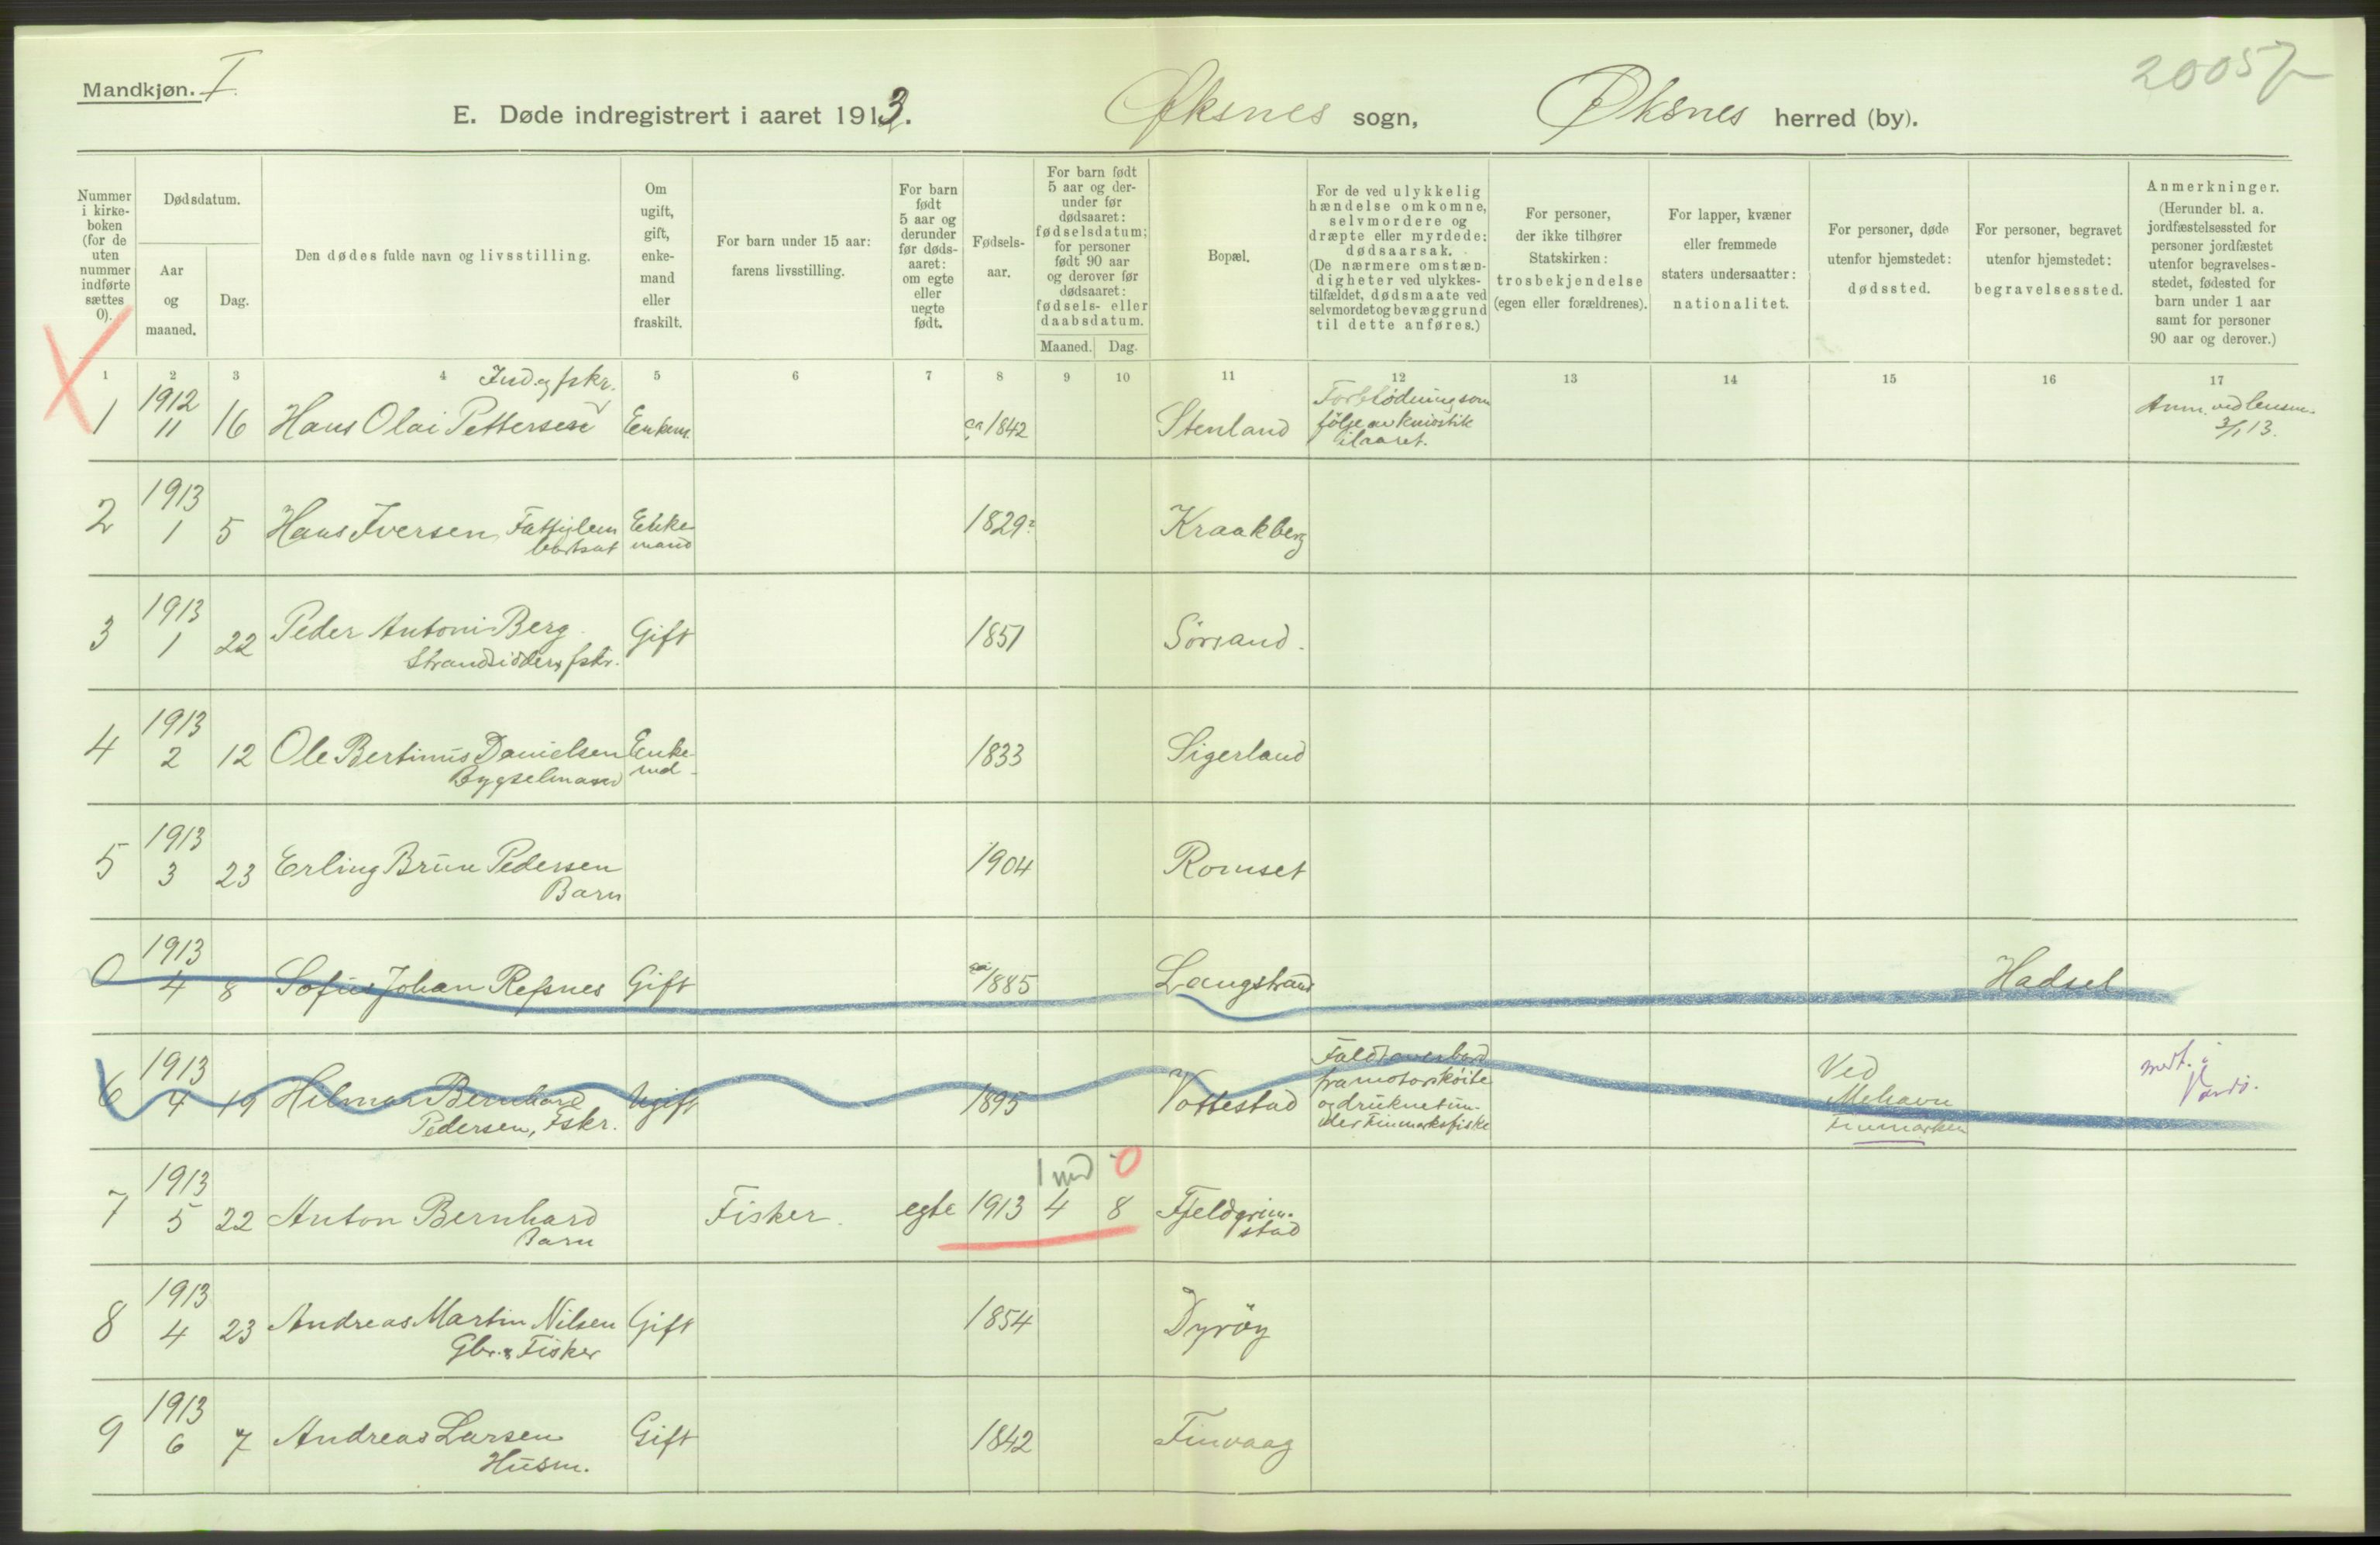 Mandkjøn. I.
20057
E. Døde indregistrert i aaret 1913. Øksnes sogn, Øksnes herred (by).
Nummer i kirke-boken (for de uten nummer indførte sættes 0).
Dødsdatum.
Aar og maaned.
Dag.
Den dødes fulde navn og livsstilling.
Om ugift, gift, enke-mand eller fraskilt.
For barn under 15 aar: farens livsstilling.
For barn født 5 aar og derunder før døds-aaret: om egte eller uegte født.
Fødsels-aar.
For barn født 5 aar og der-under før dødsaaret: fødselsdatum; for personer født 90 aar og derover før dødsaaret: fødsels- eller daabsdatum.
Maaned. Dag.
Bopæl.
For de ved ulykkelig hændelse omkomne, selvmordere og dræpte eller myrdede: dødsaarsak. (De nærmere omstæn-digheter ved ulykkes-tilfældet, dødsmaate ved selvmordet og bevæggrund til dette anføres.)
For personer, der ikke tilhører Statskirken: trosbekjendelse (egen eller forældrenes).
For lapper, kvæner eller fremmede staters undersaatter: nationalitet.
For personer, døde utenfor hjemstedet: dødssted.
For personer, begravet utenfor hjemstedet: begravelsessted.
Anmerkninger. (Herunder bl. a. jordfæstelsessted for personer jordfæstet utenfor begravelses-stedet, fødested for barn under 1 aar samt for personer 90 aar og derover.)
1 2 3 4 5 6 7 8 9 10 11 12 13 14 15 16 17
1 1912 11 16 Hans Olai Pettersen Ind. og fskr. Enkem. ca 1842 Stenland Forblødning som følge av knivstik i laaret. Anm. ved lensm. 3/1 13.
2 1913 1 5 Hans Iversen, Fattiglem bortsat Enke mand 1829? Kraakberg
3 1913 1 22 Peder Antoni Berg Strandsidder, fskr. Gift 1851 Sørsand.
4 1913 2 12 Ole Bertinus Danielsen Bygselmand Enke-md. 1833 Sigerland
5 1913 3 23 Erling Brun Pedersen Barn 1904 Romset
0 1913 4 8 Sofus Johan Refsnes Gift ca 1885 Langstrand Hadsel
6 1913 4 19 Hilmar Bernhard Pedersen, Fskr. Ugift 1895 Vottestad Faldt overbord fra motorskøite og druknet un-der Finmarksfiske Ved Mehavn Finmarken medt. i Vardø.
7 1913 5 22 Anton Bernhard Barn Fisker. egte 1913 4 8 1 md 0 Fjeldgrim-stad
8 1913 4 23 Andreas Martin Nilsen Gbr. & Fisker Gift 1854 Dyrøy
9 1913 6 7 Andreas Larsen Husm. Gift 1842 Finvaag